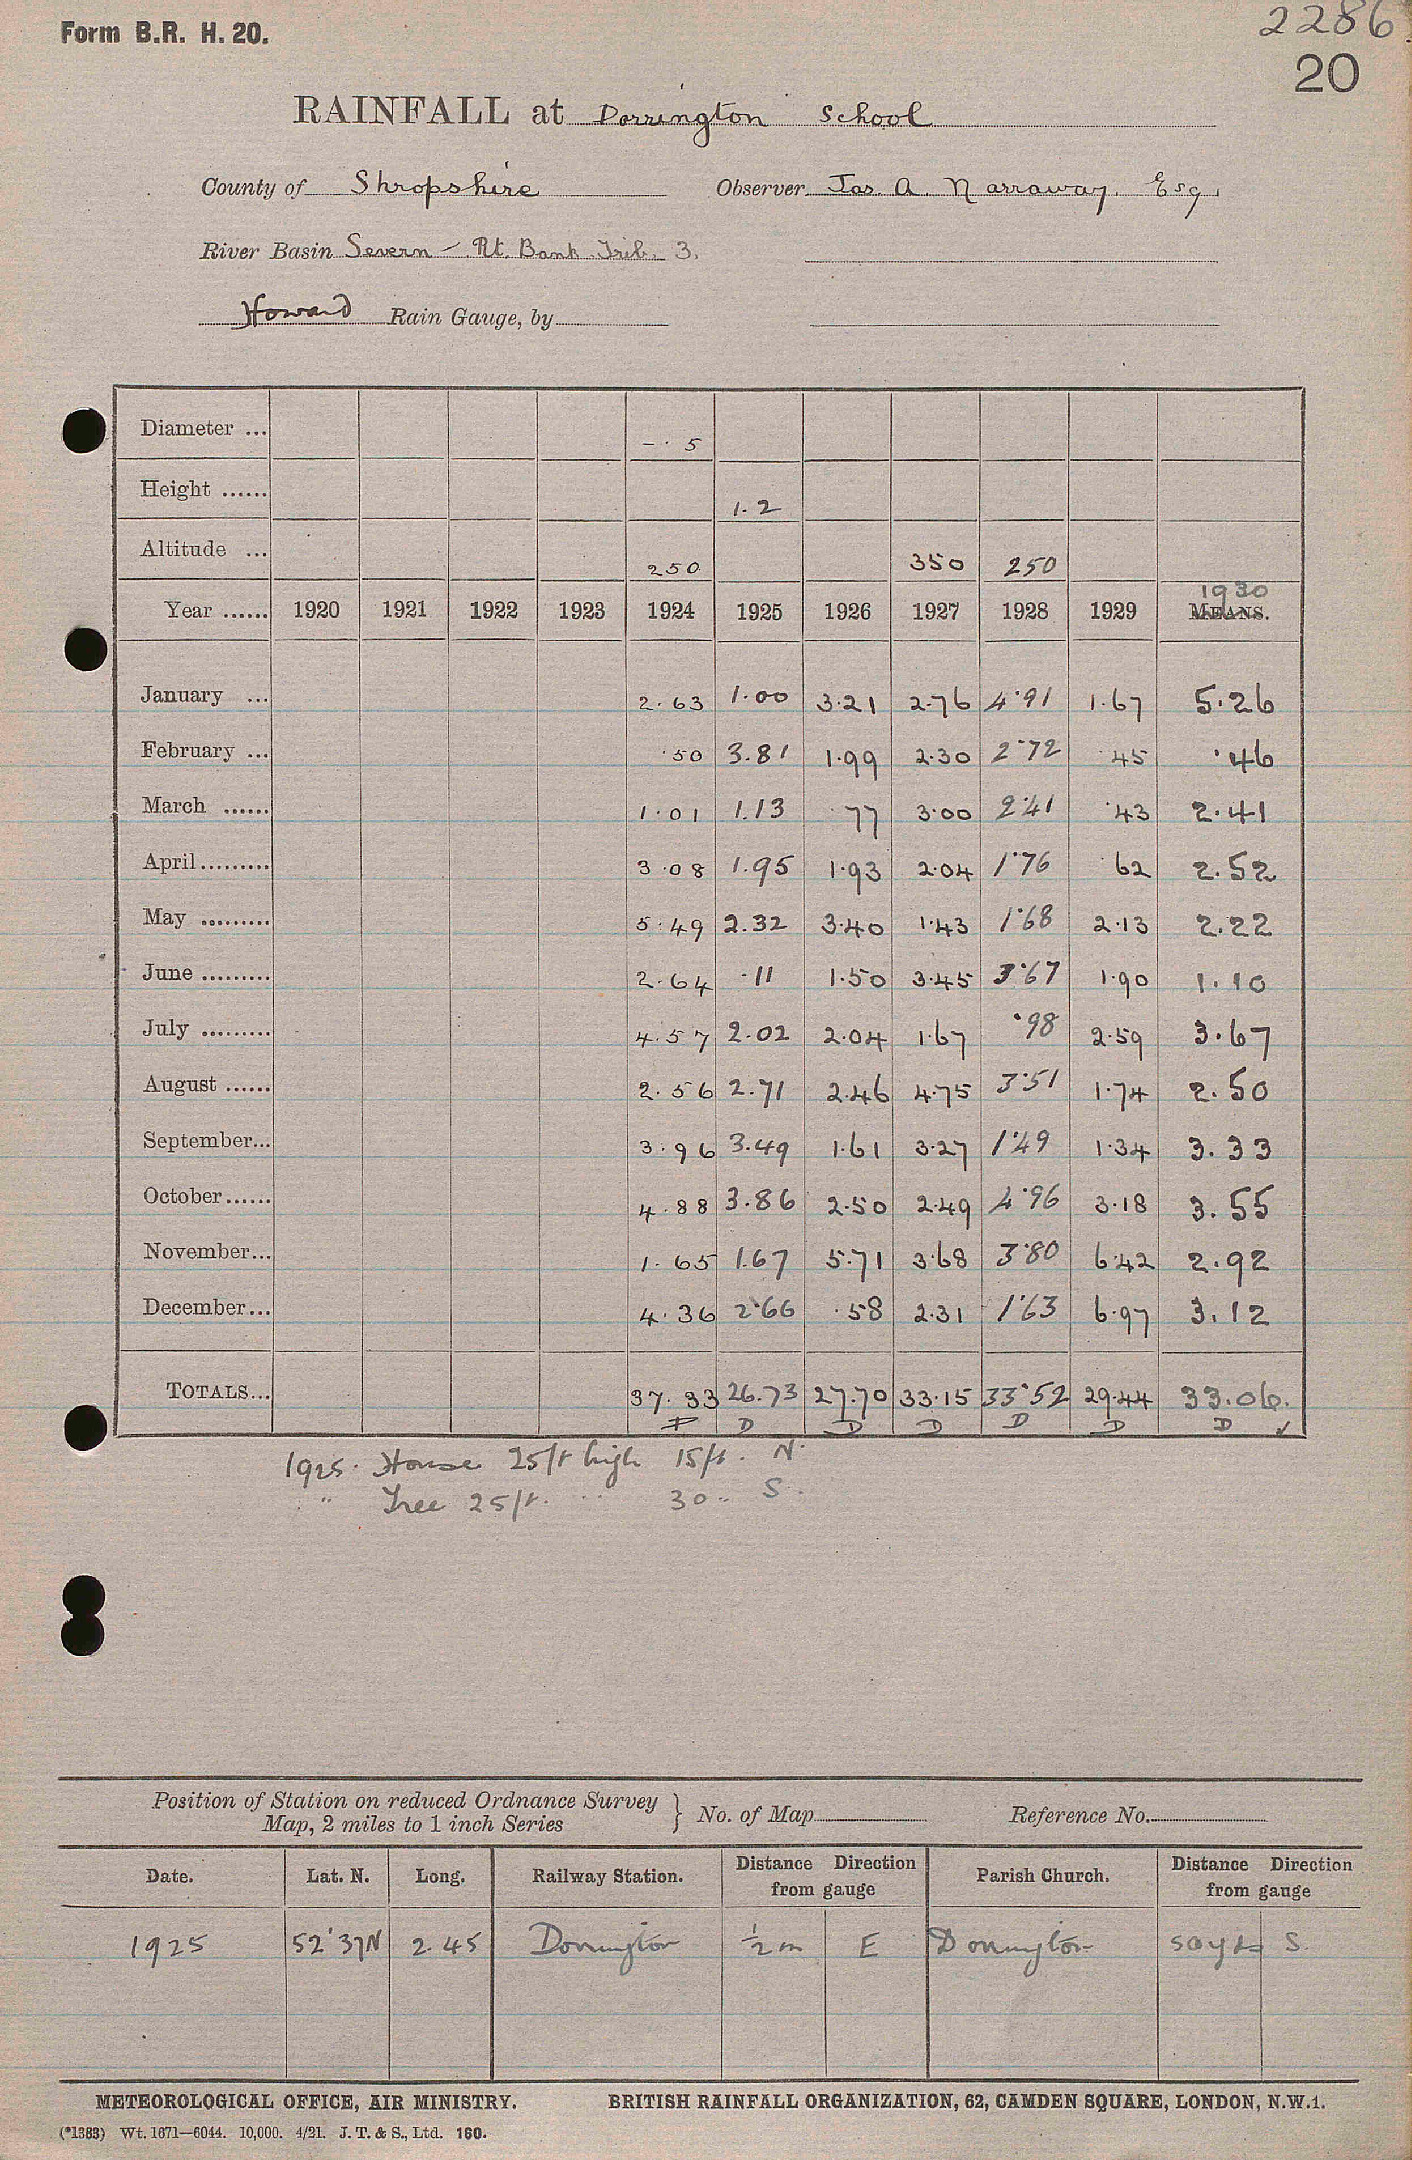 Form B.R. H. 20.
2286
20
RAINFALL at Dorrington School
County of Shropshire Observer Jas. A. Narraway. Esq.
River Basin Severn - Rt. Bank Trib. 3.
Howard Rain Gauge, by
Diameter ... - . 5
Height ...... 1.2
Altitude ... 250 350 250
1930
Year ...... 1920 1921 1922 1923 1924 1925 1926 1927 1928 1929 MEANS.
January ... 2.63 1.00 3.21 2.76 4.91 1.67 5.26
February ... .50 3.81 1.99 2.30 2.72 .45 .46
March ...... 1.01 1.13 .77 3.00 2.41 .43 2.41
April......... 3.08 1.95 1.93 2.04 1.76 .62 2.52
May ......... 5.49 2.32 3.40 1.43 1.68 2.13 2.22
June ......... 2.64 .11 1.50 3.45 3.67 1.90 1.10
July ......... 4.57 2.02 2.04 1.67 .98 2.59 3.67
August ...... 2.56 2.71 2.46 4.75 3.51 1.74 2.50
September... 3.96 3.49 1.61 3.27 1.49 1.34 3.33
October...... 4.88 3.86 2.50 2.49 4.96 3.18 3.55
November... 1.65 1.67 5.71 3.68 3.80 6.42 2.92
December... 4.36 2.66 .58 2.31 1.63 6.97 3.12
TOTALS... 37.33 26.73 27.70 33.15 33.52 29.44 33.06.
D D D D D D
1925. House 25ft high 15ft. N.
" Tree 25ft. " 30 " S.
Position of Station on reduced Ordnance Survey Map, 2 miles to 1 inch Series } No. of Map Reference No.
Date. Lat. N. Long. Railway Station. Distance Direction from gauge Parish Church. Distance Direction from gauge
1925 52°37N 2.45 Dorrington ½ m E Dorrington 50 yds S.
METEOROLOGICAL OFFICE, AIR MINISTRY. BRITISH RAINFALL ORGANIZATION, 62, CAMDEN SQUARE, LONDON, N.W.1.
(*1383) Wt. 1671—6044. 10,000. 4/21. J. T. & S., Ltd. 160.